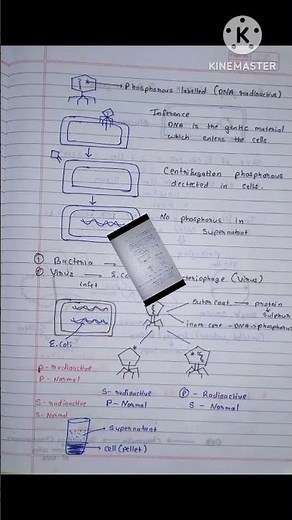 K
KINEMASTER
Phosphorous labelled (DNA radioactive)
Inference
DNA is the gentic material
which enters the cells
Centrifugation phosphorous
dectected in cells.
No phosphorus in
Supernatant
① Bacteria
② Virus
infect
teriophage (Virus)
outer coat → protein
↓
Sulphur
inner coat - DNA → phosphorus
E.coli
P - radioactive
P - Normal
S - radioactive
S - Normal
S - radioactive
P - Normal
Ⓟ - Radioactive
S - Normal
Supernatant
cell (pellet)